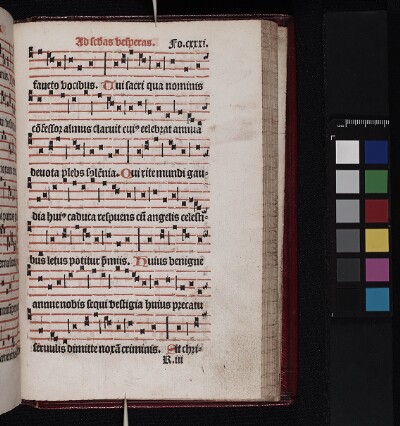 Ad scďas vesperas. Fo.cxxxi.
faucto vocibus. Qui sacri qua nominis
cōfessor almus claruit cui⁹ celebrat annua
devota plebs solēnia. Qui rite mundi gau-
dia hui⁹ caduca respuens cū angelis celesti-
bus letus potitur p̄miis. Huius benigne
annue nobis sequi vestigia huius precatu
servulis dimitte noxā criminis. Sit chri-
R.iii